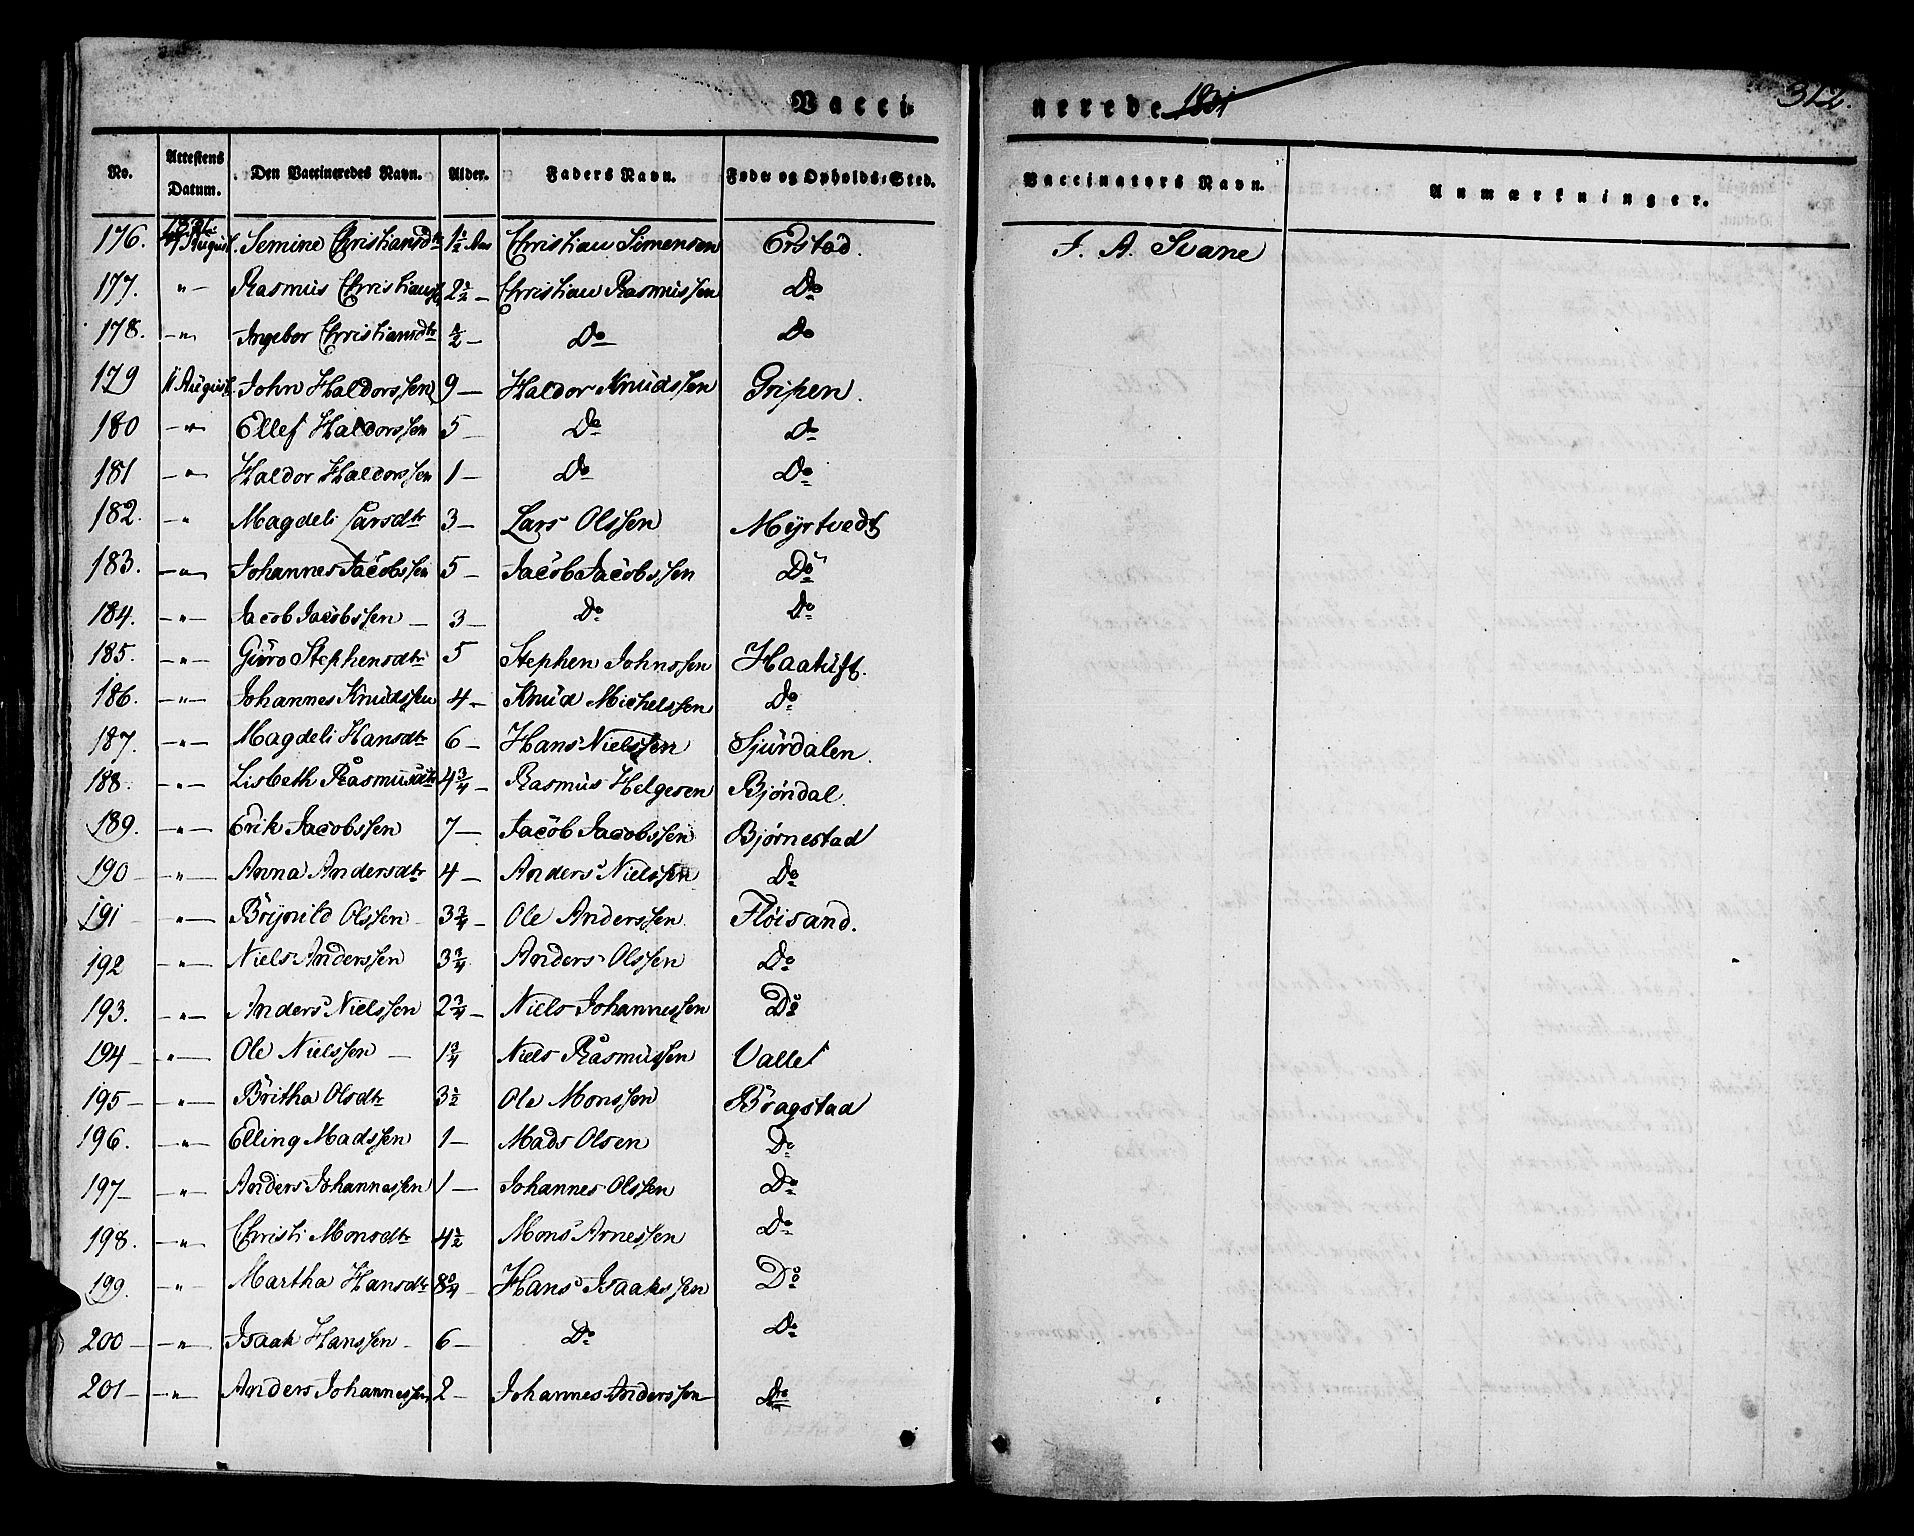 Vacci nerede 1831
312.
No. Attestens Datum. Den Vaccineredes Navn. Alder. Faders Navn. Føde og Opholds-Sted. Vaccinators Navn. Anmærkninger.
1831
176. August. Semine Christiansdtr 1 1/2 Aar Christian Simensen Erstad. J. A. Svane
177. " Rasmus Christians 2 1/2 Christian Rasmussen Do
178. " Ingebor Christiansdtr 1/2 Do Do
179 11 August John Haldorssen 9 Haldor Knudssen Gripen.
180 " Ellef Haldorssen 5 Do Do
181 " Haldor Haldorssen 1 Do Do
182. " Magdeli Larsdtr 3 Lars Olssen Myrtvedt
183. " Johannes Jacobssen 5 Jacob Jacobssen Do
184. " Jacob Jacobssen 3 Do Do
185. " Guro Stephensdtr 5 Stephen Johnssen Haatuft.
186. " Johannes Knudssen 4 Knud Michelssen Do
187. " Magdeli Hansdtr 6 Hans Nielssen Sjurdalen.
188. " Lisbeth Rasmusdtr 4 3/4 Rasmus Helgesen Bjøndal.
189. " Erik Jacobssen 7 Jacob Jacobssen Bjørnestad
190 " Anna Andersdtr 4 Anders Nielssen Do
191 " Brynild Olssen 3 3/4 Ole Anderssen Fløisand.
192 " Niels Anderssen 3 3/4 Anders Olssen Do
193. " Anders Nielssen 2 3/4 Niels Johannessen Do
194 " Ole Nielssen 1 3/4 Niels Rasmussen Valle
195 " Britha Olsdtr 3 1/2 Ole Monssen Bragstad
196. " Elling Madssen 1 Mads Olsen Do
197 " Anders Johannessen 1 Johannes Olssen Do
198. " Christi Monsdtr 4 1/2 Mons Arnessen Do
199. " Martha Hansdtr 8 3/4 Hans Isaakssen Do
200 " Isaak Hanssen 6 Do Do
201 " Anders Johannessen 2 Johannes Anderssen Do